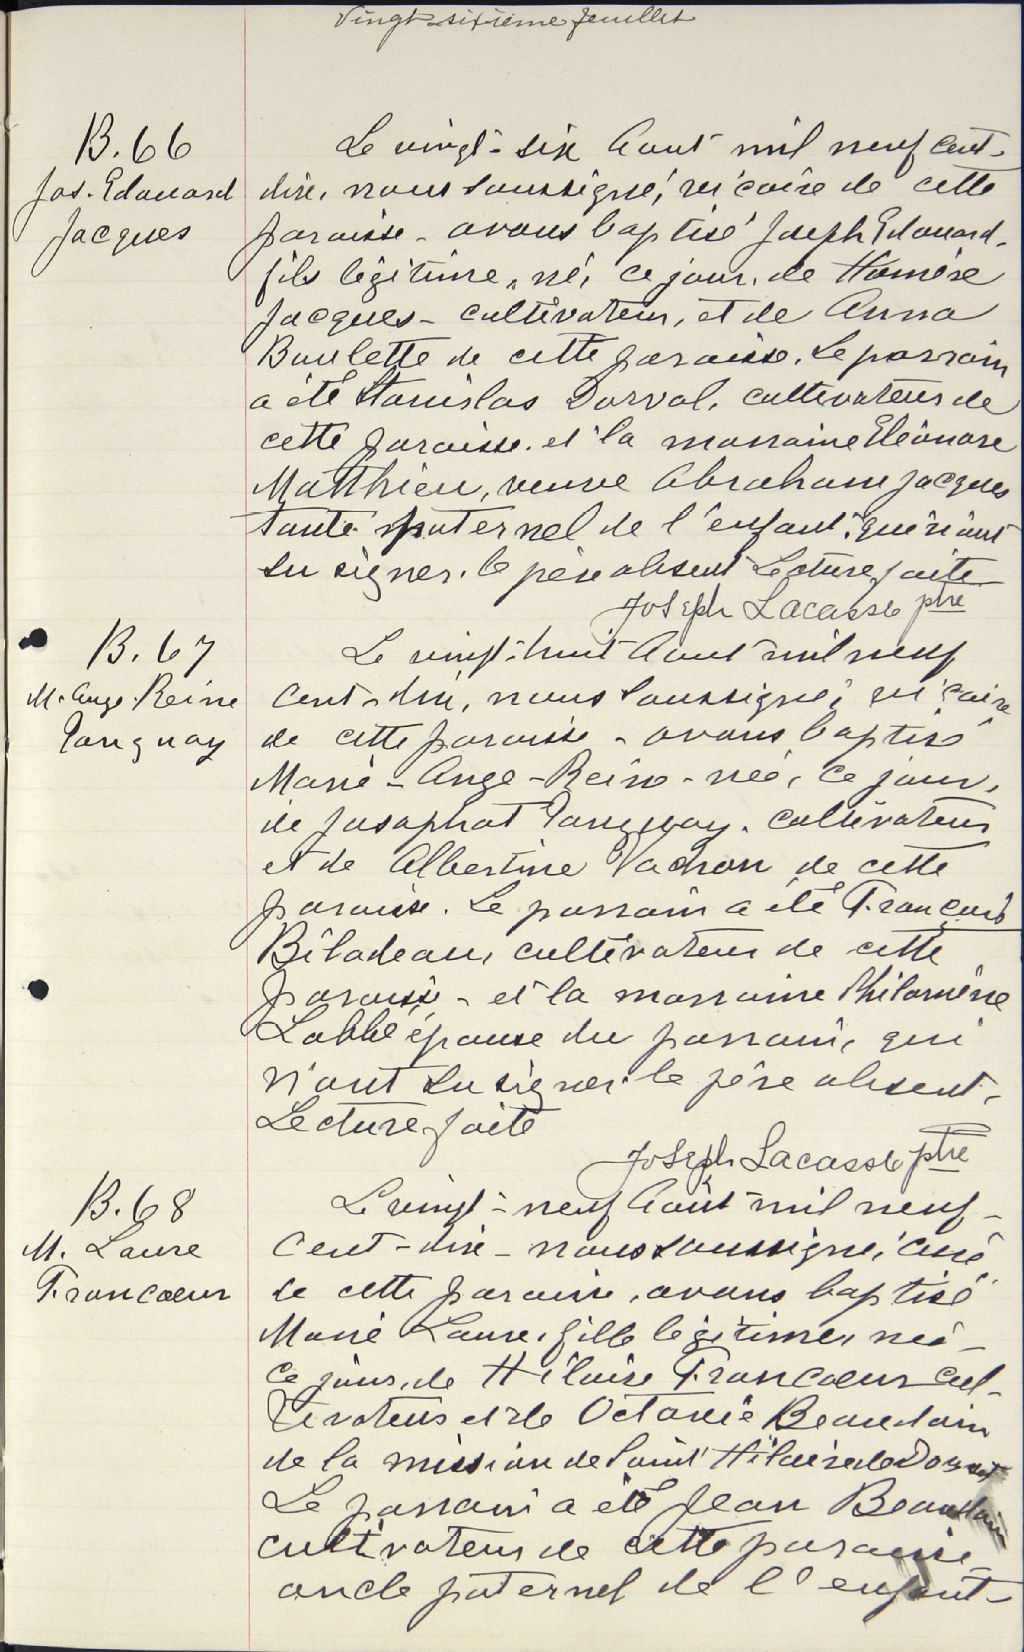 Vingt-sixième feuillet
B. 66
Jos. Edouard
Jacques
Le vingt-six Aout mil neuf cent-
dix, nous soussigné, vicaire de cette
paroisse - avons baptisé Joseph Edouard,
fils légitime, né, ce jour, de Homère
Jacques - cultivateur, et de Anna
Boulette de cette paroisse. Le parrain
a été Stanislas Dorval, cultivateur de
cette paroisse et la marraine Eléonore
Matthieu, veuve Abraham Jacques
tante paternel de l'enfant, qui n'ont
su signer. le père absent Lecture faite
Joseph Lacasse ptre
B. 67
M. Ange. Reine
Tanguay
Le vingt-huit Aout mil neuf
cent-dix, nous soussigné, vicaire
de cette paroisse - avons baptisé
Marie - Ange - Reine - née, ce jour,
de Josaphat Tanguay, cultivateur
et de Albertine Vachon de cette
paroisse. Le parrain a été François
Bilodeau, cultivateur de cette
paroisse - et la marraine Philomène
Labbé épouse du parrain, qui
n'ont su signer. le père absent.
Lecture faite
Joseph Lacasse ptre
B. 68
M. Laure
Francoeur
Le vingt-neuf Août mil neuf-
cent-dix - nous soussigné, curé
de cette paroisse, avons baptisé
Marie Laure, fille légitime, née
ce jour, de Hilaire Francoeur cul-
tivateur et de Octavie Beaudoin
de la mission de Saint Hilaire de Dorset
Le parrain a été Jean Beaudoin
cultivateur de cette paroisse
oncle paternel de l'enfant-